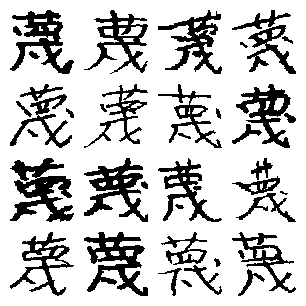 蔑蔑蔑蔑
蔑蔑蔑蔑
蔑蔑蔑蔑
蔑蔑蔑蔑